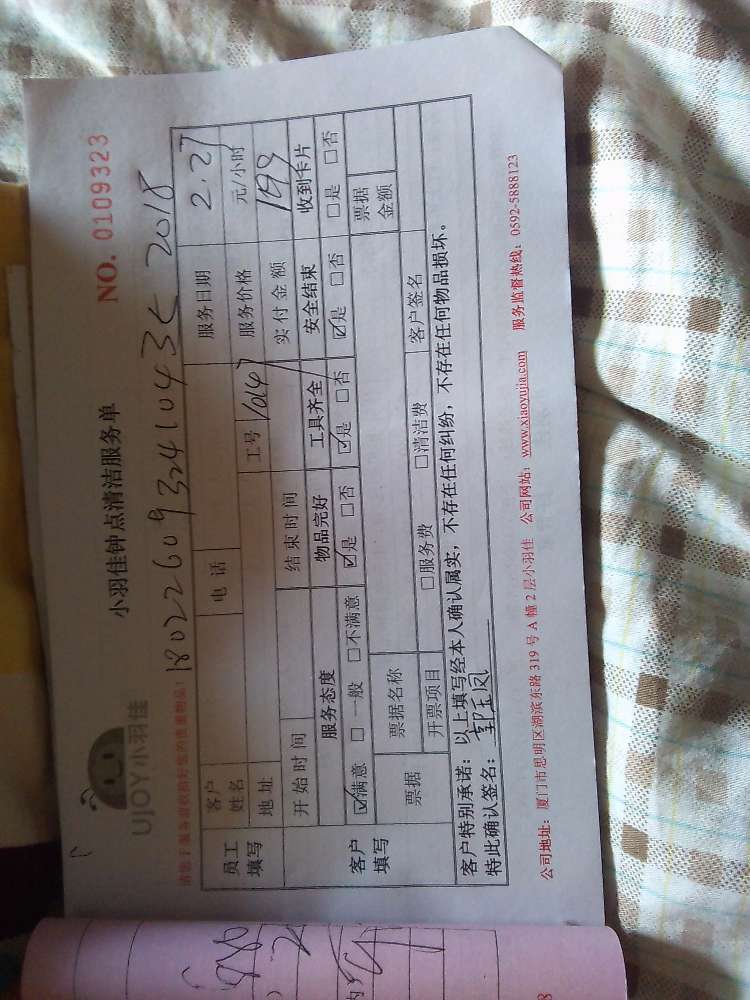 UJOY小羽佳
小羽佳钟点清洁服务单
NO. 0109323
180226093241043 2018
客户姓名 电话 服务日期 2.27
员工填写 地址 工号 服务价格 元/小时
开始时间 结束时间 实付金额 199
客户填写 服务态度 物品完好 工具齐全 安全结束 收到卡片
☑满意 □一般 □不满意 ☑是 □否 ☑是 □否 ☑是 □否 □是 □否
票据 票据名称 票据金额
开票项目 □服务费 □清洁费 客户签名
客户特别承诺：以上填写经本人确认属实，不存在任何纠纷，不存在任何物品损坏。
特此确认签名：郭玉凤
公司地址：厦门市思明区湖滨东路 319 号 A 幢 2 层小羽佳 公司网站：www.xiaoyujia.com 服务监督热线：0592-5888123